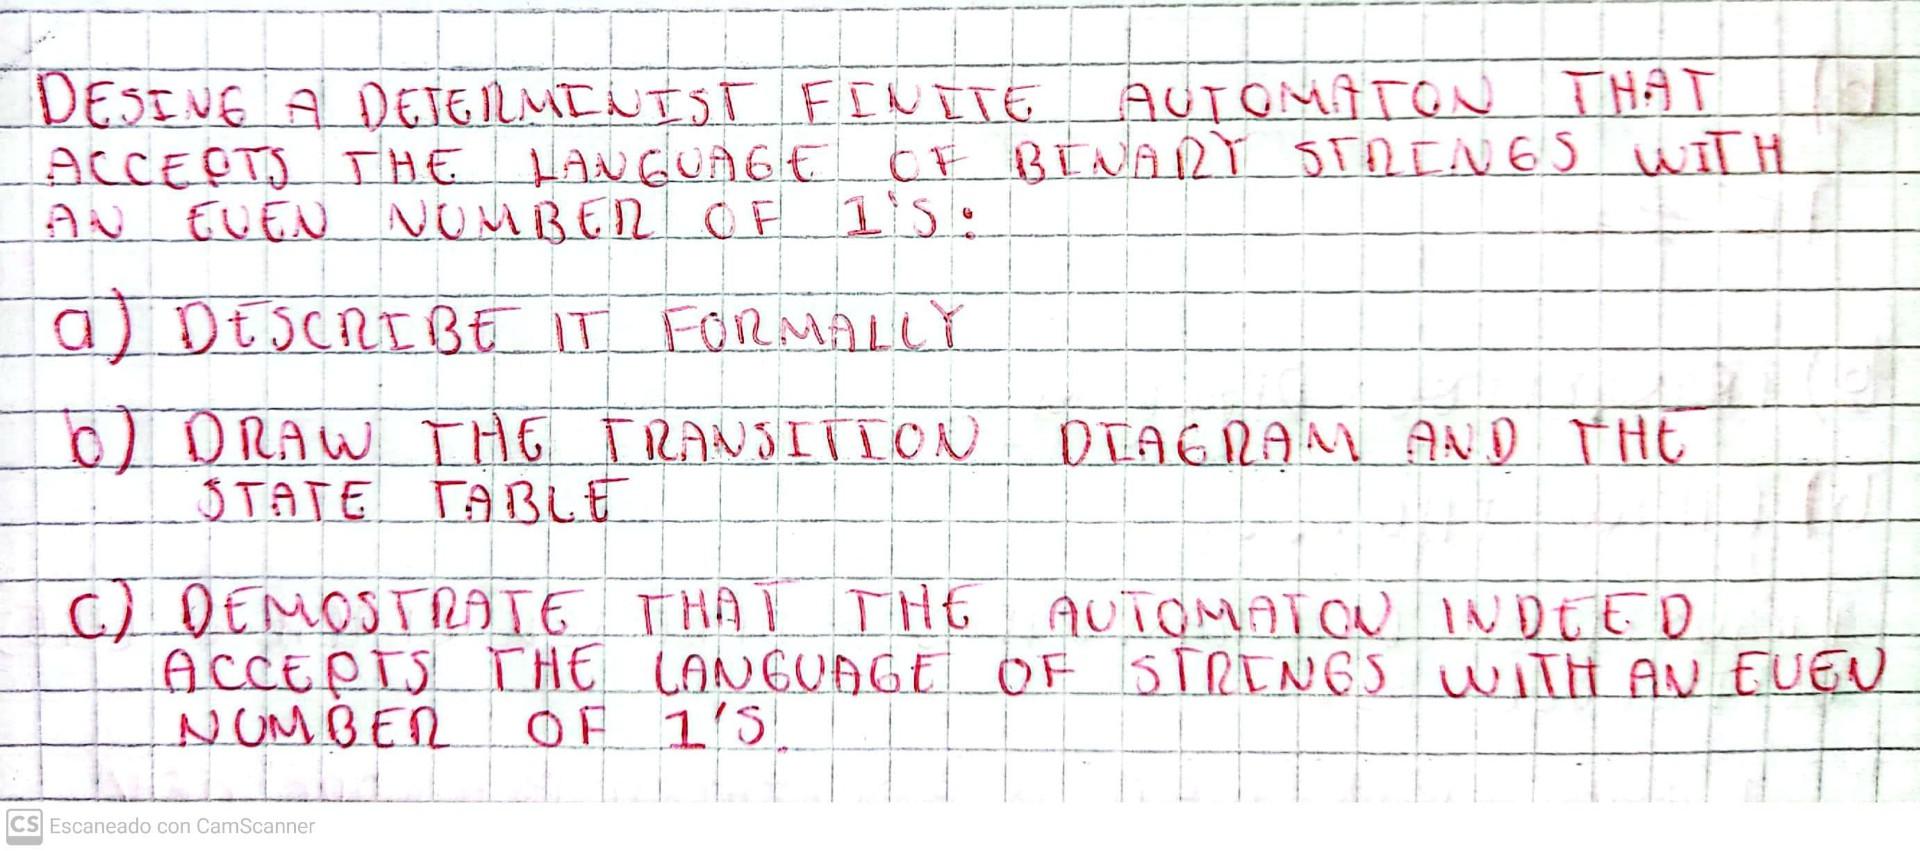 DESING A DETERMINIST FINITE AUTOMATON THAT
ACCEPTS THE LANGUAGE OF BINARY STRINGS WITH
AN EVEN NUMBER OF 1'S:
a) DESCRIBE IT FORMALLY
b) DRAW THE TRANSITION DIAGRAM AND THE
STATE TABLE
c) DEMOSTRATE THAT THE AUTOMATON INDEED
ACCEPTS THE LANGUAGE OF STRINGS WITH AN EVEN
NUMBER OF 1'S.
CS Escaneado con CamScanner